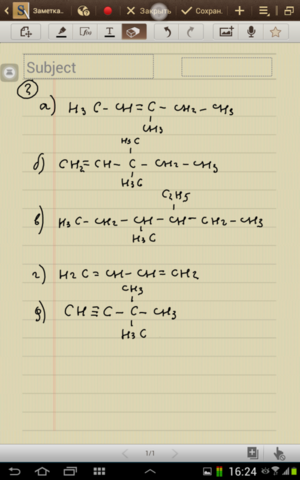 Заметка.
Закрыть
Сохран.
Subject
③
а) H3C-CH=C-CH2-CH3
CH3
H3C
б) CH2=CH-C-CH2-CH3
H3C
C2H5
в) H3C-CH2-CH-CH-CH2-CH3
H3C
г) H2C=CH-CH=CH2
CH3
д) CH≡C-C-CH3
H3C
1/1
16:24